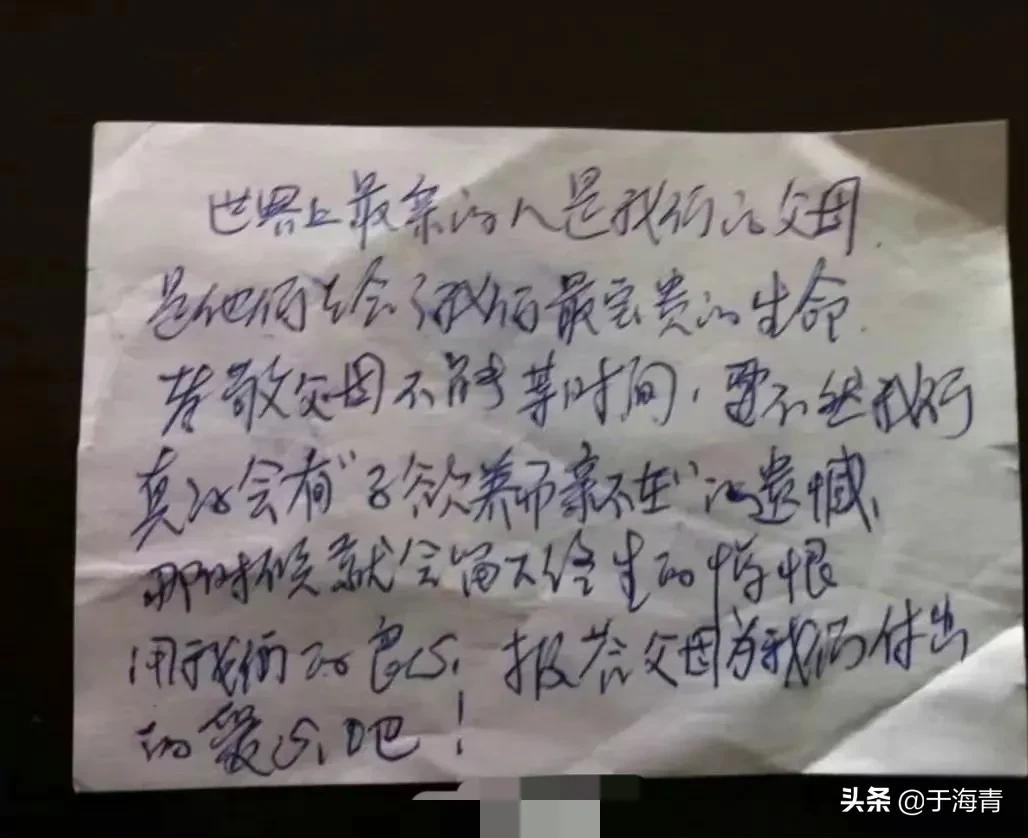 世界上最亲的人是我们的父母.
是他们去给了我们最宝贵的生命.
孝敬父母不能等时间，要不然我们
真的会有“子欲养而亲不在”的遗憾，
那时候就会留下终生的悔恨
用我们的良心，报答父母为我们付出
的爱心吧！
头条 @于海青